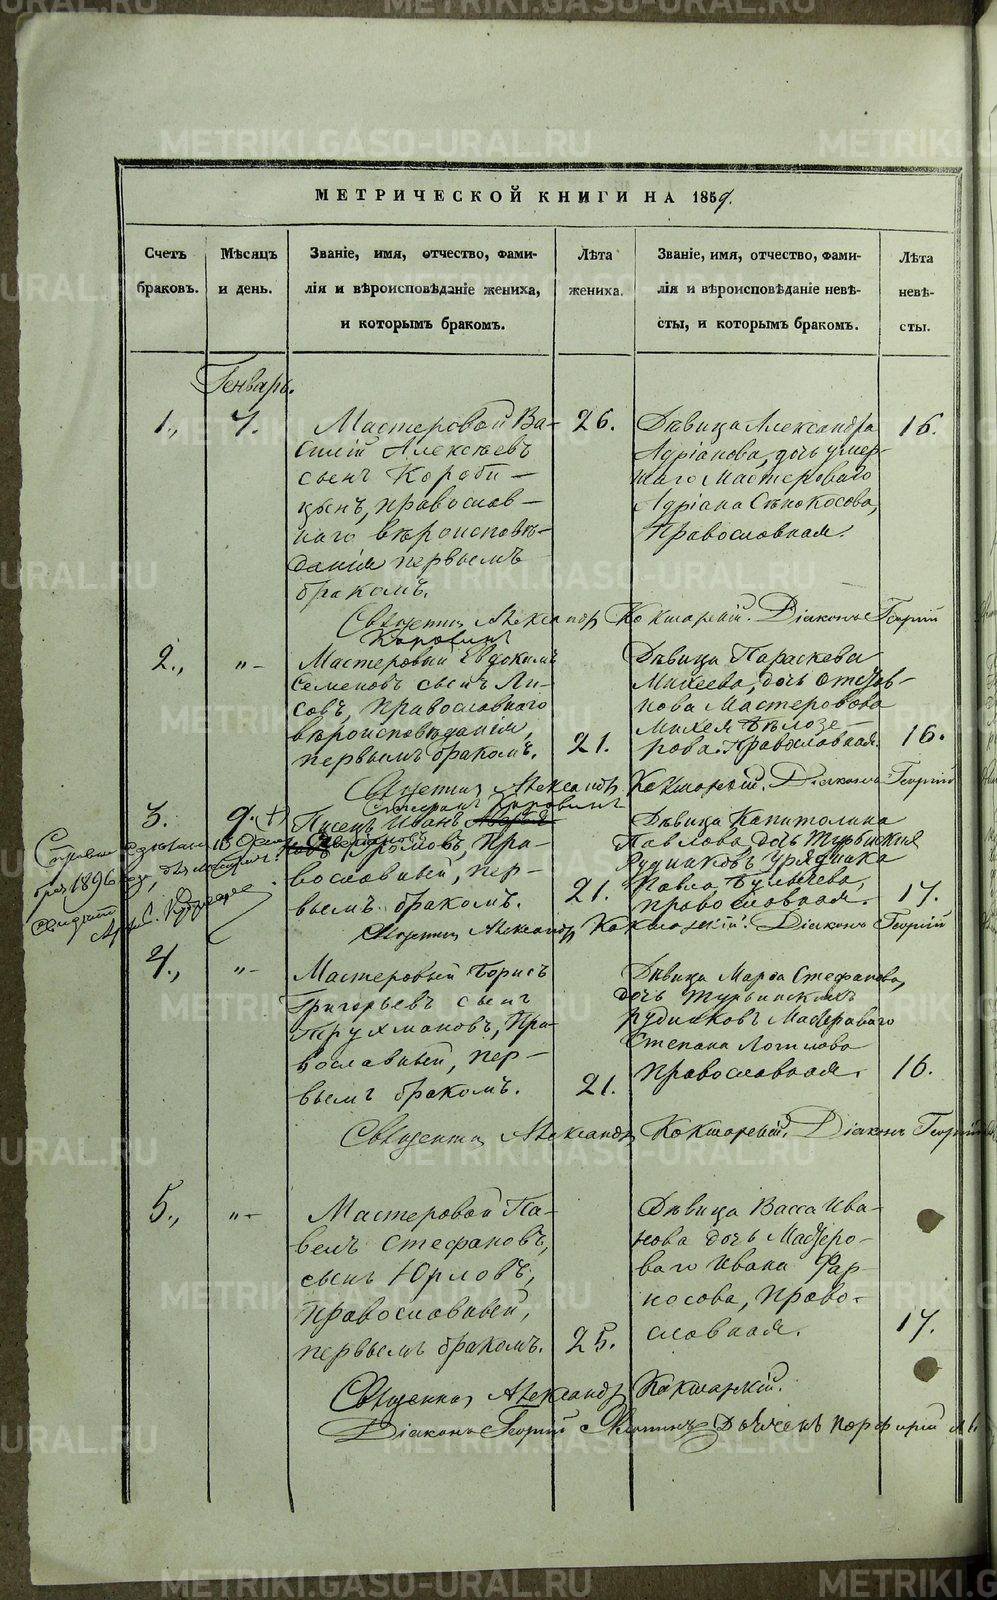 МЕТРИЧЕСКОЙ КНИГИ НА 1859.
Счетъ браковъ.
Мѣсяцъ и день.
Званіе, имя, отчество, фами-
лія и вѣроисповѣданіе жениха,
и которымъ бракомъ.
Лѣта жениха.
Званіе, имя, отчество, фами-
лія и вѣроисповѣданіе невѣ-
сты, и которымъ бракомъ.
Лѣта невѣ-
сты.
Генварь.
1., 7.
Мастеровой Ва-
силій Алексѣевъ
сынъ Короби-
цынъ, православ-
наго вѣроисповѣ-
данія первымъ
бракомъ.
26.
Дѣвица Александра
Адріанова, дочь умер-
шаго Мастероваго
Адріана Сѣнокосова,
Православная.
16.
Священник Александр Кокшарскій. Діаконъ Георгій
2., „-
Мастеровый Евдокимъ
Семеновъ сынъ Ли-
совъ, Православнаго
вѣроисповѣданія,
первымъ бракомъ.
21.
Дѣвица Параскева
Михеева, дочь
Мастерового
Михея Бѣлозе-
рова. Православная.
16.
Священник Александр Кокшарскій. Діаконъ Георгій
3. 9. (+)
Писецъ Иванъ
Громовъ, Пра-
вославный, пер-
вымъ бракомъ.
21.
Дѣвица Капитолина
Павлова, дочь Турьинскихъ
Рудниковъ Урядника
Павла Булычева,
православная.
17.
1896
Священник Александр Кокшарскій. Діаконъ Георгій
4., „-
Мастеровый Борисъ
Григорьевъ сынъ
Трухмановъ, Пра-
вославный, пер-
вымъ бракомъ.
21.
Дѣвица Марѳа Стефанова,
дочь Турьинскихъ
Рудниковъ Мастероваго
Степана Логинова
Православная.
16.
Священник Александр Кокшарскій. Діаконъ Георгій
5., „-
Мастеровой Па-
велъ Стефановъ,
сынъ Юрловъ,
Православный,
первымъ бракомъ.
25.
Дѣвица Васса Ива-
нова дочь Мастеро-
ваго Ивана Фар-
носова, Право-
славная.
17.
Священник Александр Кокшарскій.
Діаконъ Георгій Дьячекъ Порфирій
METRIKI.GASO-URAL.RU